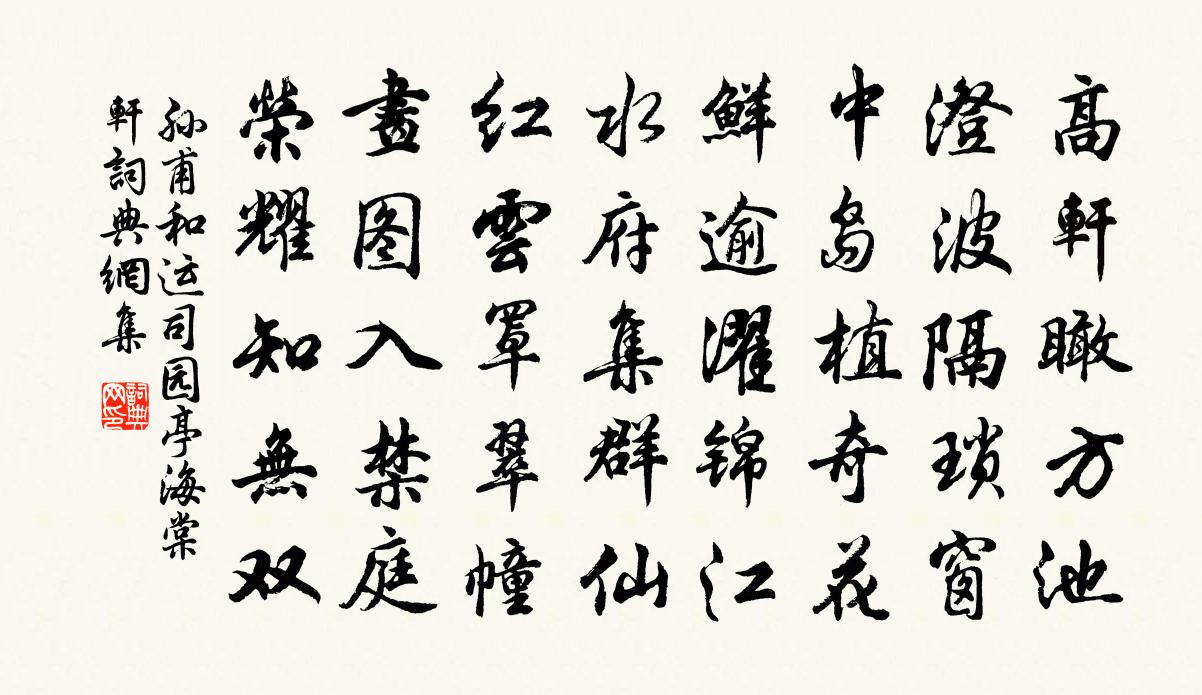 高軒瞰方池
澄波隔瑣窗
中島植奇花
鮮逾濯锦江
水府集群仙
红雲罩翠幢
畫图入禁庭
榮耀知無双
孙甫和运司园亭海棠
軒詞典網集
詞典网印